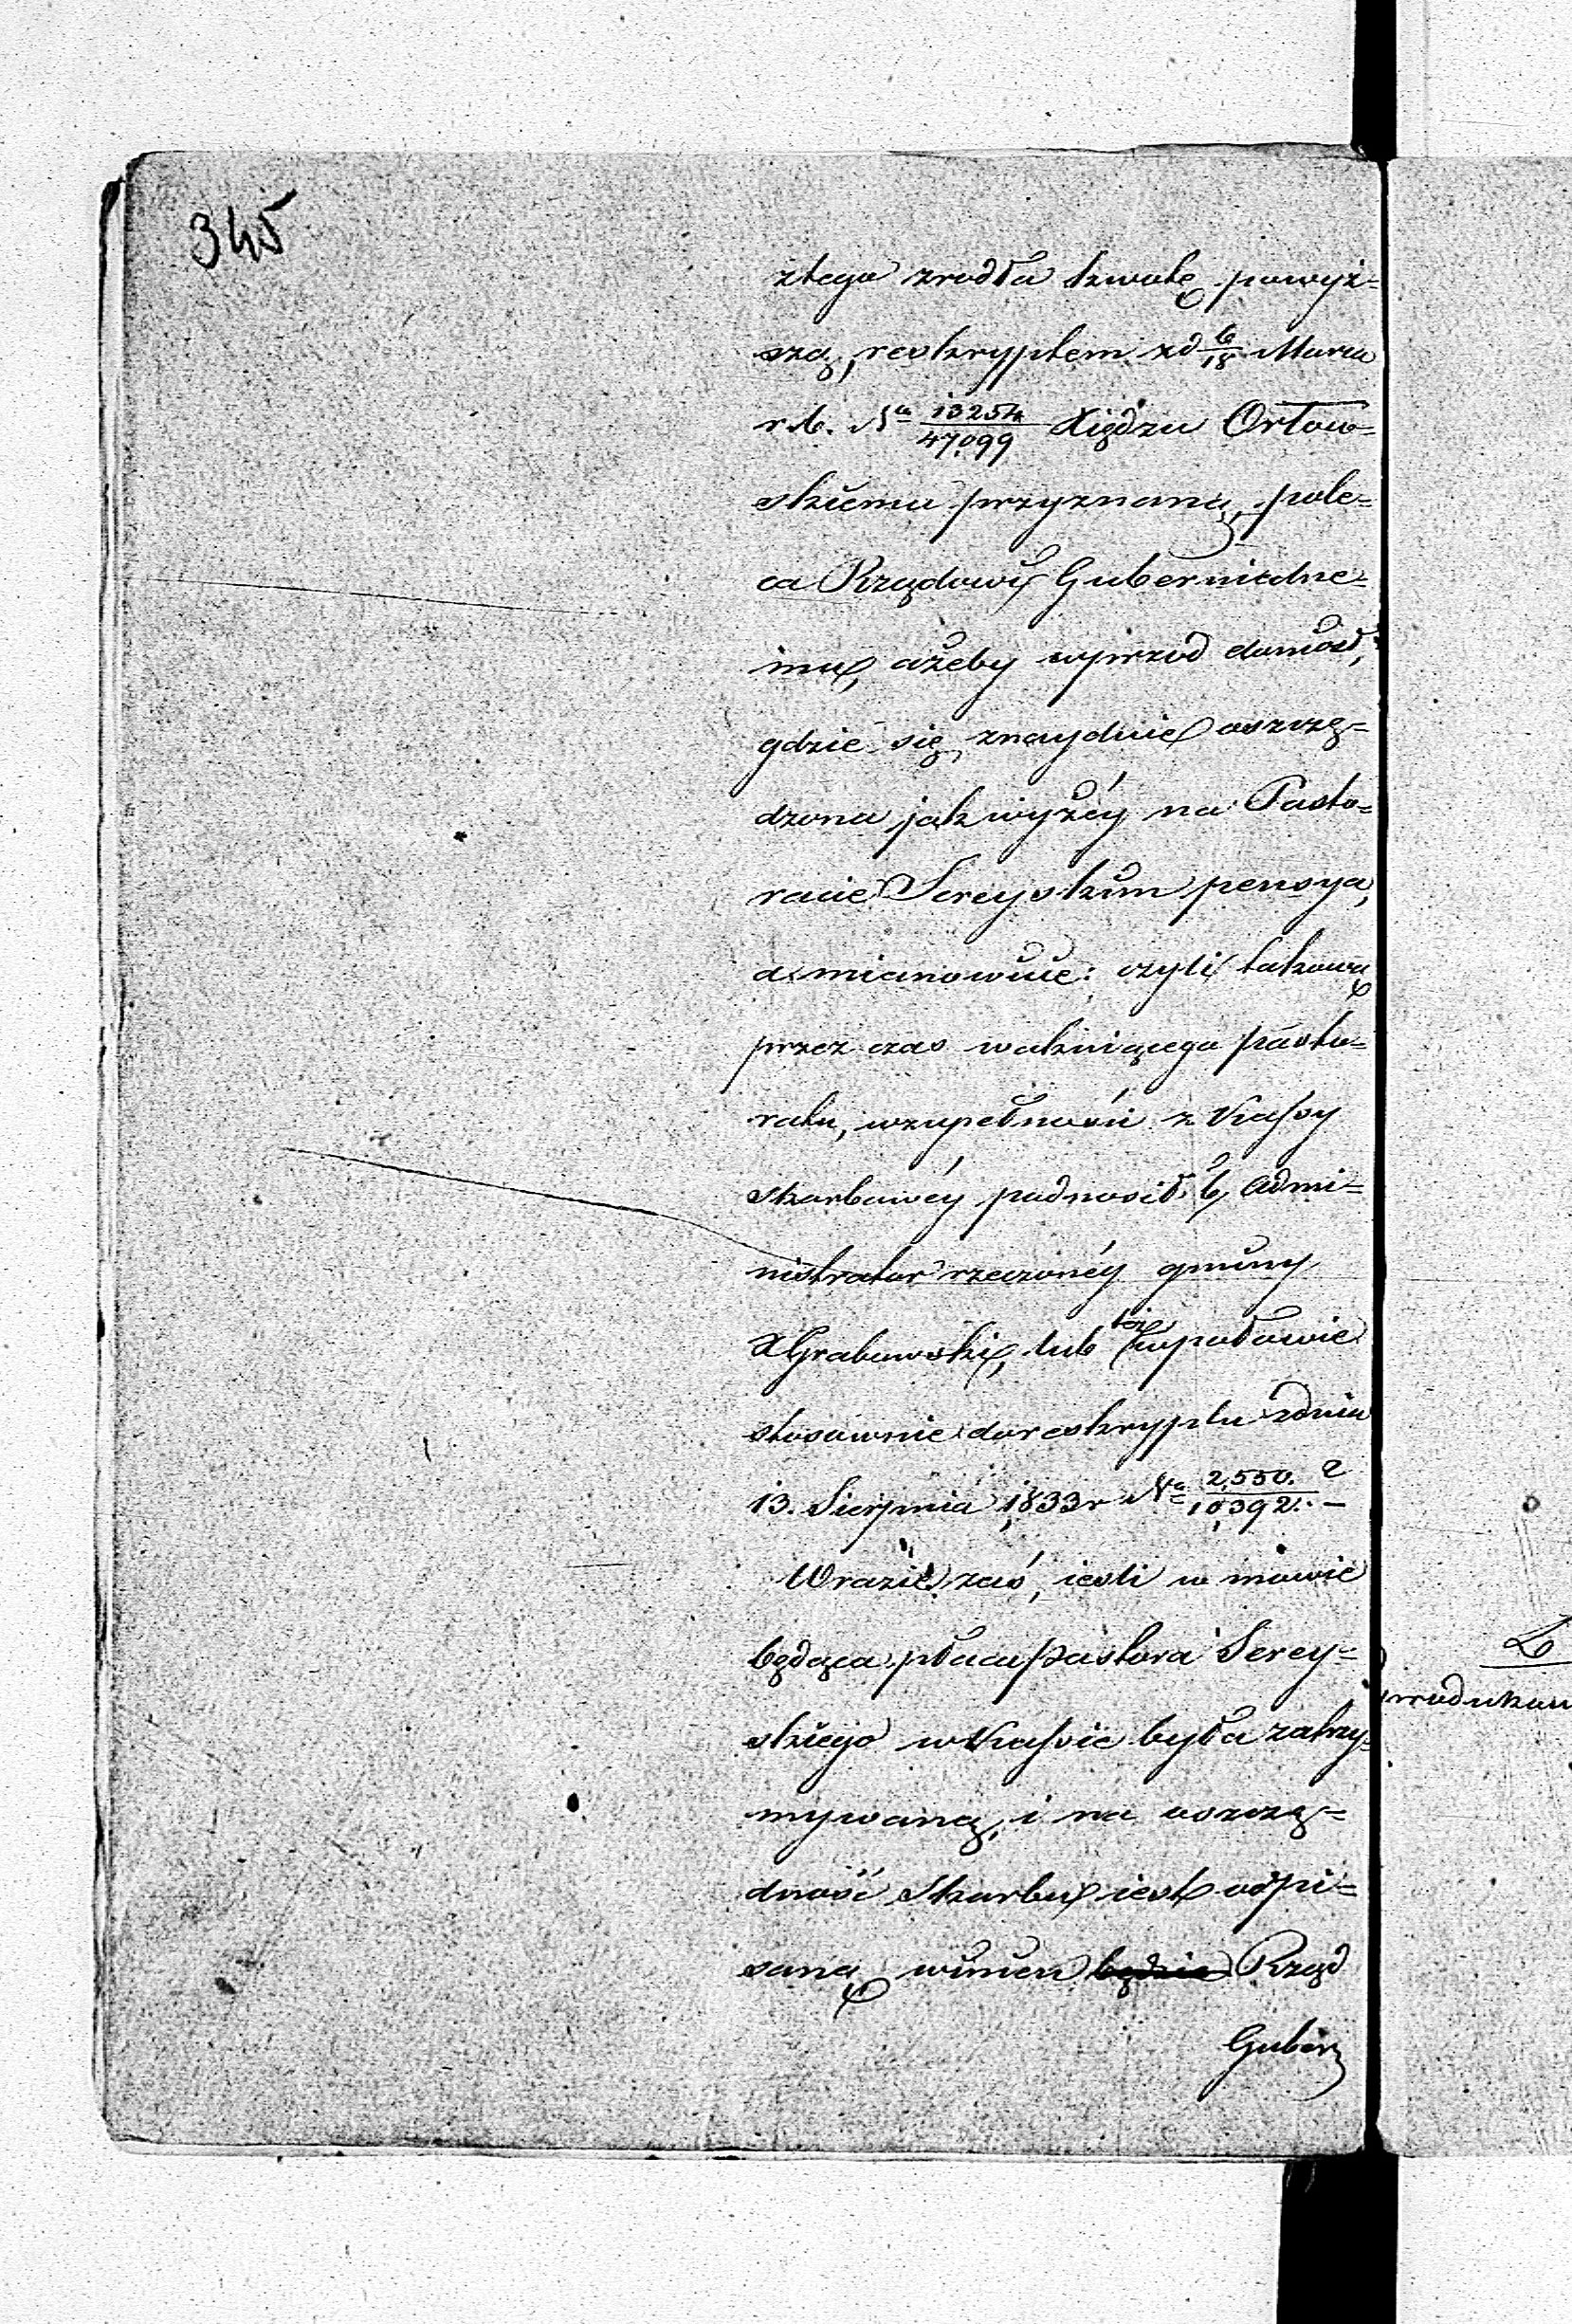 345
z tego zrodła kwotę powyż=
szą, reskryptem z d 6/18 Marca
r.b. Nº 13254/47099 Xiędzu Orłow=
skiemu przyznaną, pole=
ca Rządowi Gubernialne=
mu, ażeby wprzod doniosł,
gdzie się znayduie oszczę=
dzona jak wyżéy na Pasto=
racie Sereyskim pensya,
a mianowicie: czyli takową
przez czas wakuiącego pasto=
ratu, wzupełności z Kassy
skarbowéy podnosił b. Admi=
nistrator rzeczonéy gminy
X Grabowski, lub też wpołowie
stosownie do reskryptu z dnia
13. Sierpnia 1833 r Nº 2,550./10,392. ?
W razie zaś, iesli w mowie
będąca płaca Pastora Serey=
skiego w Kassie była zatrzy=
mywaną, i na oszczę=
dność Skarbu iest odpi=
saną winien będzie Rząd
Guber